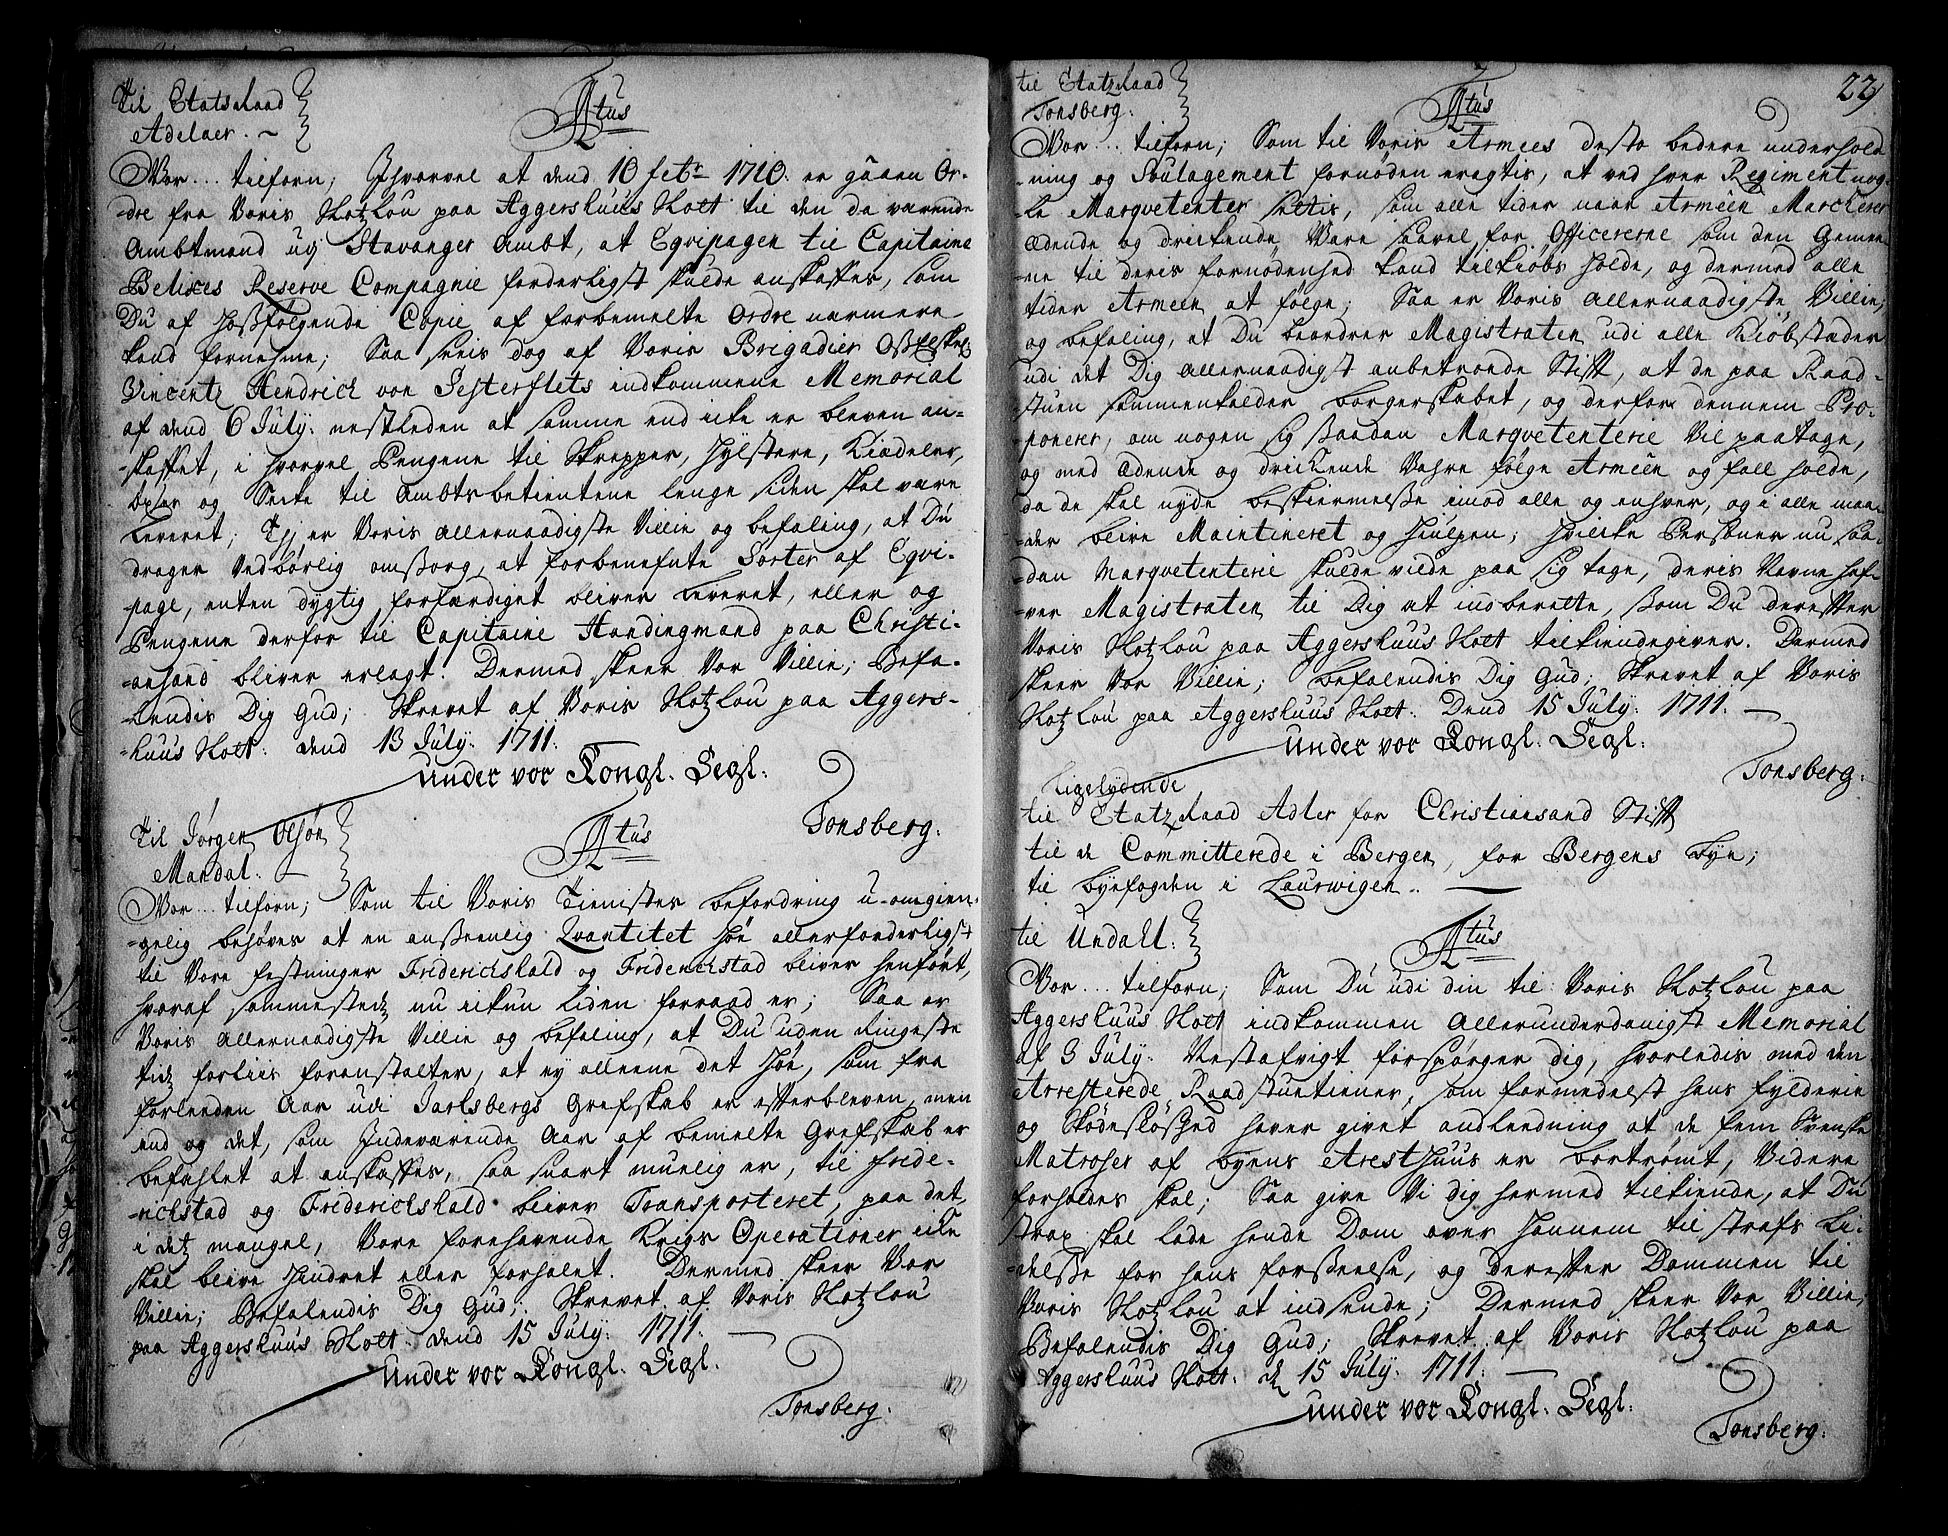 Til Etatsraad
Adelaer. ~
Atus
Vor... tilforn; Ihvorvel at dend 10 febr 1710. er gaaen Or-
-dre fra Voris Slotzlou paa Aggershuus Slott til den da værende
Ambtmand udj Stavanger Ambt, at Eqvipagen til Capitaine
Belixes Reserve Compagnie forderligst skulde anskaffes, som
Du af hosfølgende Copie af forbemelte Ordre nærmere
kand fornehme; Saa seeis dog af Voris Brigadier
Vincentz Hendrich von Sesterflets indkommene Memorial
af dend 6 July. nestleden at samme end icke er bleven an-
-skaffet, i hvorvel Pengene til Skrepper, Hylstere, Kiædeler,
Øxer og Secke til Ambtsbetientene lenge siden skal være
Leveret; Thj er Voris Allernaadigste Villie og befaling, at Du
drager Vedbørlig omsorg, at forbenefnte Sorter af Eqvi-
-page, enten dygtig forfærdiget bliver Leveret, eller og
Pengene derfor til Capitaine Handingmand paa Christi-
-ansand bliver erlagt. Dermed skeer Vor Villie; Befa-
-lendis Dig Gud; Skrevet af Voris Slotzlou paa Aggers-
-huus Slott. dend 13 July. 1711.
Under vor Kongl. Segl.
Tonsberg.
Til Jørgen Olsøn
Mandal. —
Atus
Vor... tilforn; Som til Voris Tienistes befordring u-omgien-
-gelig behøves at en anseenlig Qvantitet Høe allerforderligst
til Vore festninger Friderichshald og Friderichstad bliver henført,
hvoraf sammestedz nu ickun Liden forraad er; Saa er
Voris Allernaadigste Villie og befaling, at Du uden Ringeste
tidz forliis foranstalter, at ey alleene det Høe, som fra
forleeden Aar udi Jarlsbergs Grefskab er efterbleven, men
end og det, som Indeværende Aar af bemelte Grefskab er
befahlet at anskaffes, saa snart muelig er, til Fride-
-richstad og Friderichshald bliver Transporteret, paa det
i detz mangel, Vore forehavende Krigs Operationer icke
skal blive Hindret eller forhalet. Dermed skeer Vor
Villie; Befalendis Dig Gud; Skrevet af Voris Slotzlou
paa Aggershuus Slott. dend 15 July. 1711. —
Under vor Kongl. Segl.
Tonsberg.
22
til Etatzraad
Tonsberg.
Atus
Vor... tilforn; Som til Voris Armees desto bedere underhold
-ning og Soulagement fornøden eragtis, at ved hver Regiment nog-
-le Marqvetenter settis, som alle tider naar Armeen Marcherer
ædende og drickende Vare saavel for Officererne som den Gemee-
-ne til deris fornødenhed kand tilkiøbs holde, og dermed alle
tider Armeen at følge; Saa er Voris Allernaadigste Villie,
og befaling, at Du beordrer Magistraten udi alle Kiøbstæder
udi det Dig Allernaadigst anbetroede Stift, at de paa Raad-
-stuen sammenkalder borgerskabet, og derfor dennem Pro-
-ponerer, om nogen sig saadan Marqvetenterie Vil paatage,
og med ædende og drickende Vahre følge Armeen og fall holde,
da de skal nyde beskiermelse imod alle og enhver, og i alle maa-
-der blive Maintineret og Hiulpen; Hvilcke Personer nu saa-
-dan Marqvetenterie skulde vilde paa sig tage, deris Navne haf-
-ver Magistraten til Dig at indberette, som Du derefter
Voris Slotzlou paa Aggershuus Slott tilkiendegiver. Dermed
skeer Vor Villie; befalendis Dig Gud; Skrevet af Voris
Slotzlou paa Aggershuus Slott. Dend 15 July. 1711. —
Under vor Kongl. Segl.
Tonsberg.
Ligelydende
til Etatzraad Adler for Christiansand Stift
til de Committerede i Bergen, for Bergens
til byefogden i Laurwigen. —
til Undall.
Atus
Vor... tilforn; Som Du udi din til Voris Slotzlou paa
Aggershuus Slott indkommen Allerunderdanigst Memorial
af 3 July. Nestafvigt forspørger dig, hvorledis med den
Arresterede Raadstuetiener, som formedelst hans fylderie
og Skødesløshed haver givet andleedning at de fem Svenske
Matroser af byens Aresthuus er bortrømt, Videre
forholdes skal; Saa give Vi dig hermed tilkiende, at Du
strax skal lade hende Dom over Hannem til straffs Li-
-delse for hans forseelse, og derefter Dommen til
Voris Slotzlou at indsende; Dermed skeer Vor Villie,
Befalendis Dig Gud; Skrevet af Voris Slotzlou paa
Aggershuus Slott. d 15 July. 1711. —
Under vor Kongl. Segl.
Tonsberg.